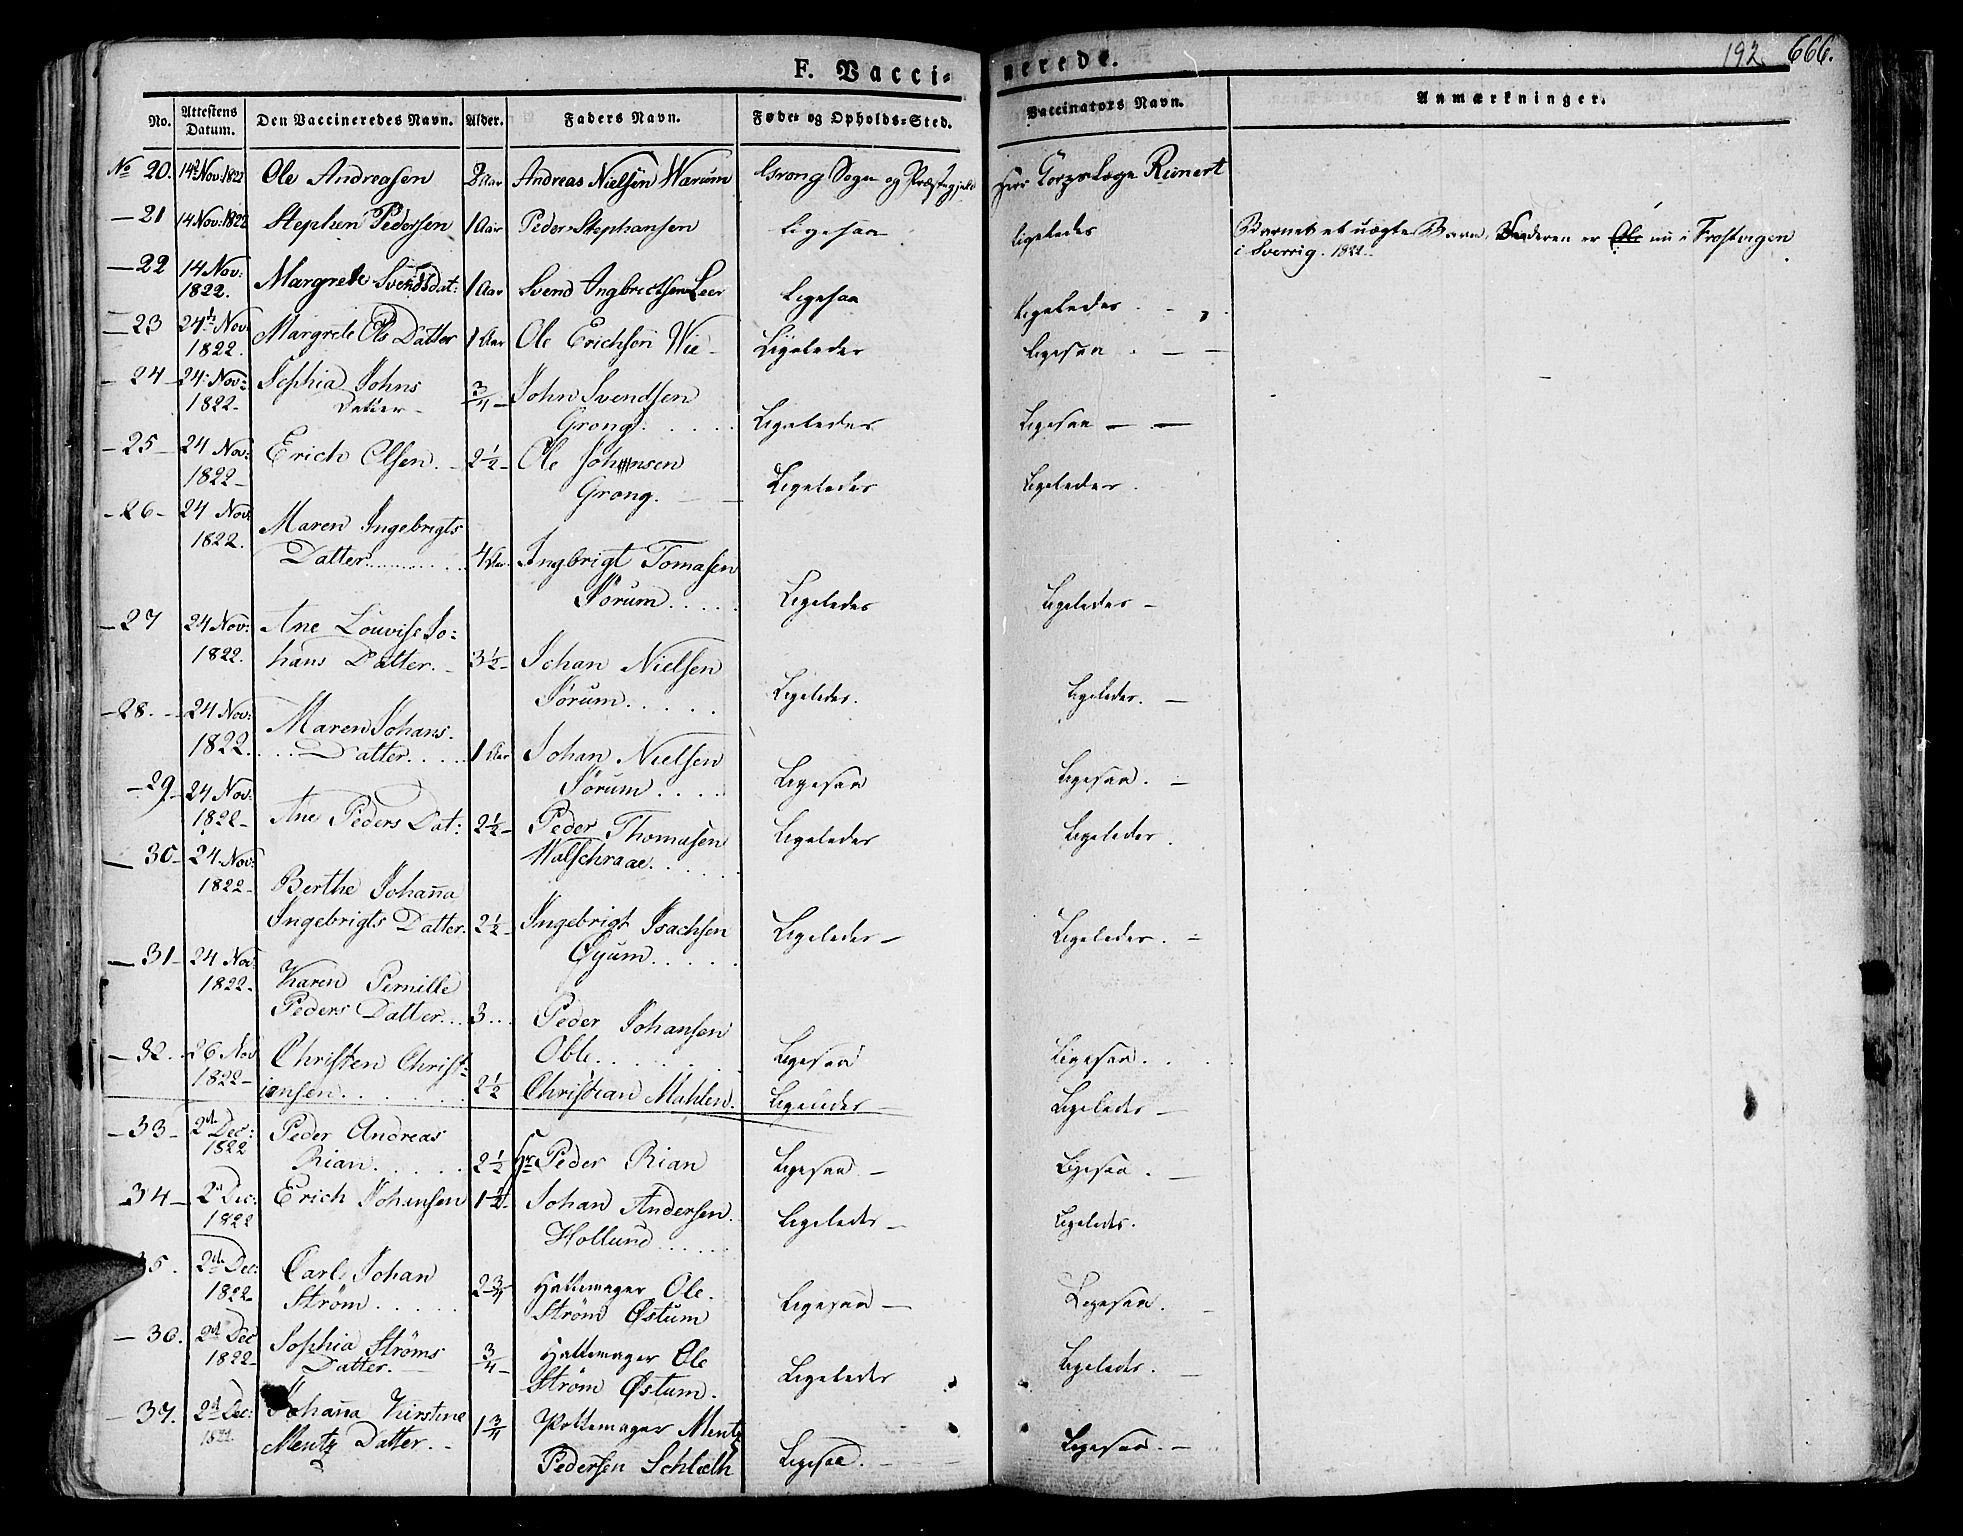 192. 666.
F. Vacci- nerede.
No. Attestens Datum. Den Vaccineredes Navn. Alder. Faders Navn. Føde- og Opholds-Sted. Vaccinators Navn. Anmærkninger.
No 20. 14de Nov: 1822 Ole Andreasen 8 Aar Andreas Nielsen Warum Grong Sogn og Præstegjeld Herr Corpslæge Reinert
— 21 14 Nov: 1822 Stephen Pedersen 1 Aar Peder Stephansen Ligesaa Ligeledes Barnet et uægte Barn, Faderen er nu i Frostvigen
i Sverrig. 1822.
— 22 14 Nov: Margrete Svendsdat: 1 Aar Svend Ingbrectsen Leer Ligesaa Ligeledes
1822.
— 23 24de Nov: Margrete Ols Datter 1 Aar Ole Erichsen Wie Ligeledes Ligesaa
1822.
— 24 — 24 Nov: Sophia Johns 3/4 — John Svendsen
1822 — Datter — Grong Ligeledes Ligesaa — —
— 25 — 24 Nov: Erich Olsen. — 2 1/2 — Ole Johansen
1822 — Grong. Ligeledes Ligeledes.
— 26 — 24 Nov: Maren Ingebrigts
1822. Datter 4 Aar Ingbrigt Tomasen
Sørum Ligeledes Ligeledes —
— 27 24 Nov: Ane Louvise Jo:
1822. hans Datter. — 3 1/2 — Johan Nielsen
Sørum Ligeledes. Ligeledes. —
— 28. — 24 Nov: Maren Johans
1822. Datter 1 Aar Johan Nielsen
Sørum Ligesaa Ligesaa. —
— 29 — 24 Nov:
1822 — Ane Peders Dat: 2 1/2 — Peder Thomasen Ligeledes Ligeledes.
— 30 — 24 Nov: Walschraae
1822 — Berthe Johanna
Ingebrigts Datter. 2 1/2 — Ingebrigt Isachsen Ligeledes — Ligeledes. —
— 31 — 24 Nov: Øyum
1822 — Karen Pernille
Peders Datter 3 Peder Johansen
— 32. 26 Nov Christen Christ- Oble Ligesaa Ligesaa.
1822 — iansen 2 1/2 Christian Mahlen. Ligeledes — Ligeledes —
— 33 — 2de Dec: Peder Andreas
1822 Rian 2 1/2 Hr: Peder Rian Ligesaa — Ligesaa. —
— 34 — 2d Dec: Erich Johansen 1 1/2 — Johan Andersen
1822 Hollund Ligeledes — Ligeledes.
35. 2de Dec: Carl Johan 2 3/4 Hattemager Ole
1822 Strøm Strøm Østum Ligesaa — Ligesaa.
— 36. 2d Dec Sophia Strøms 3/4 — Hattemager Ole
1822 — Datter. — Strøm Østum. Ligeledes Ligeledes.
— 37. 2d Dec: Johanna Kirstine 1 3/4 Pottemager Mentz
1822. Mentz Datter. — Pedersen Schlæth Ligesaa — Ligesaa. —